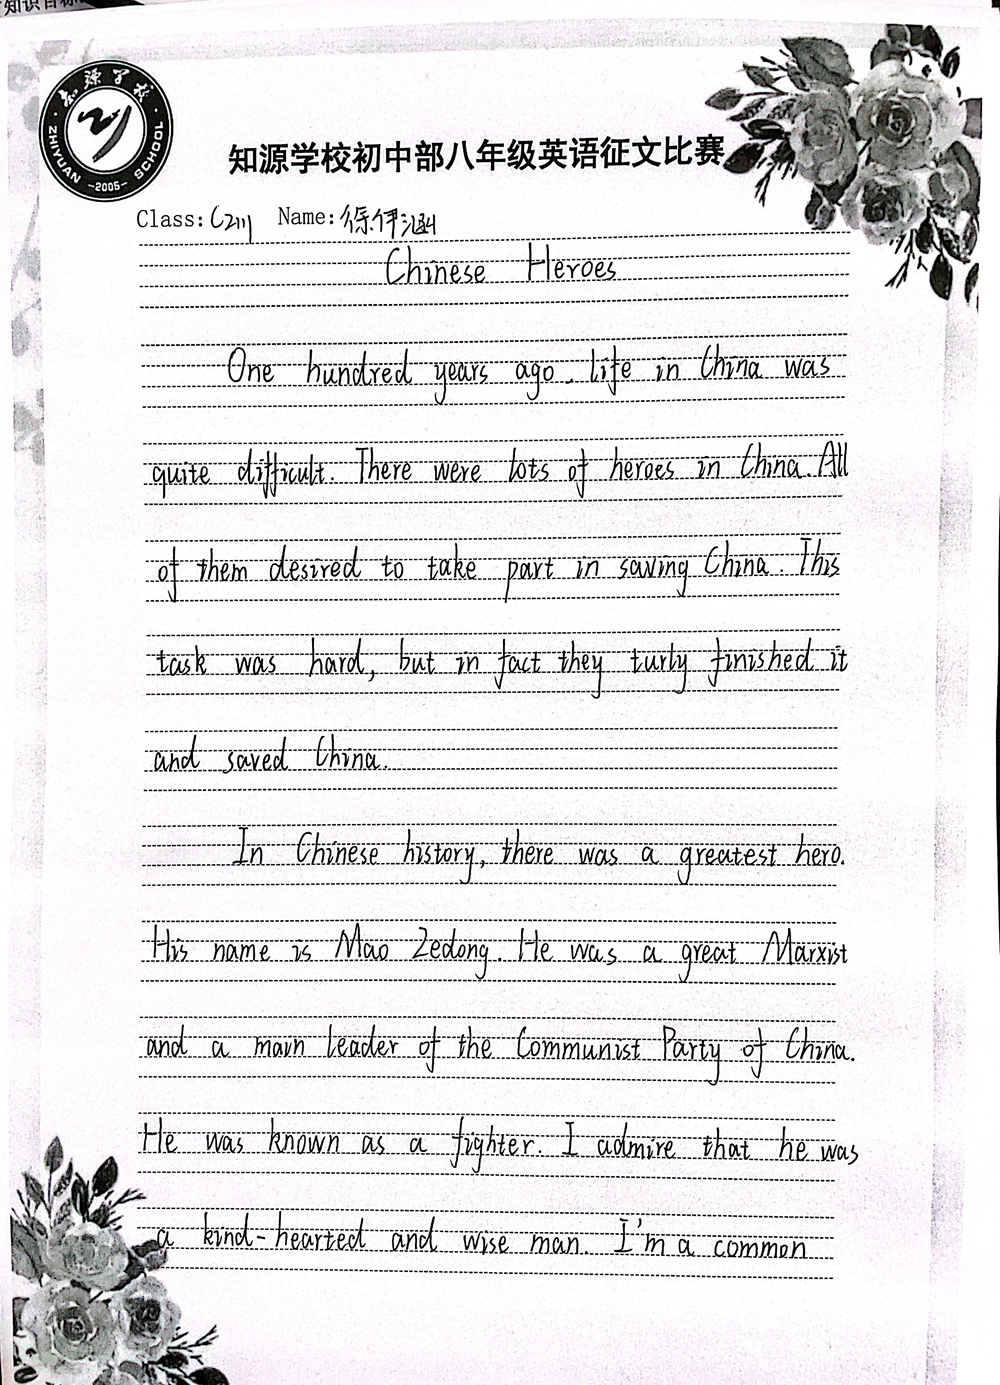 知识
知源学校
ZHIYUAN SCHOOL
-2005-
知源学校初中部八年级英语征文比赛
Class: C2111 Name: 徐伊涵
Chinese Heroes
One hundred years ago, life in China was
quite difficult. There were lots of heroes in China. All
of them desired to take part in saving China. This
task was hard, but in fact they turly finished it
and saved China.
In Chinese history, there was a greatest hero.
His name is Mao Zedong. He was a great Marxist
and a main leader of the Communist Party of China.
He was known as a fighter. I admire that he was
a kind-hearted and wise man. I'm a common